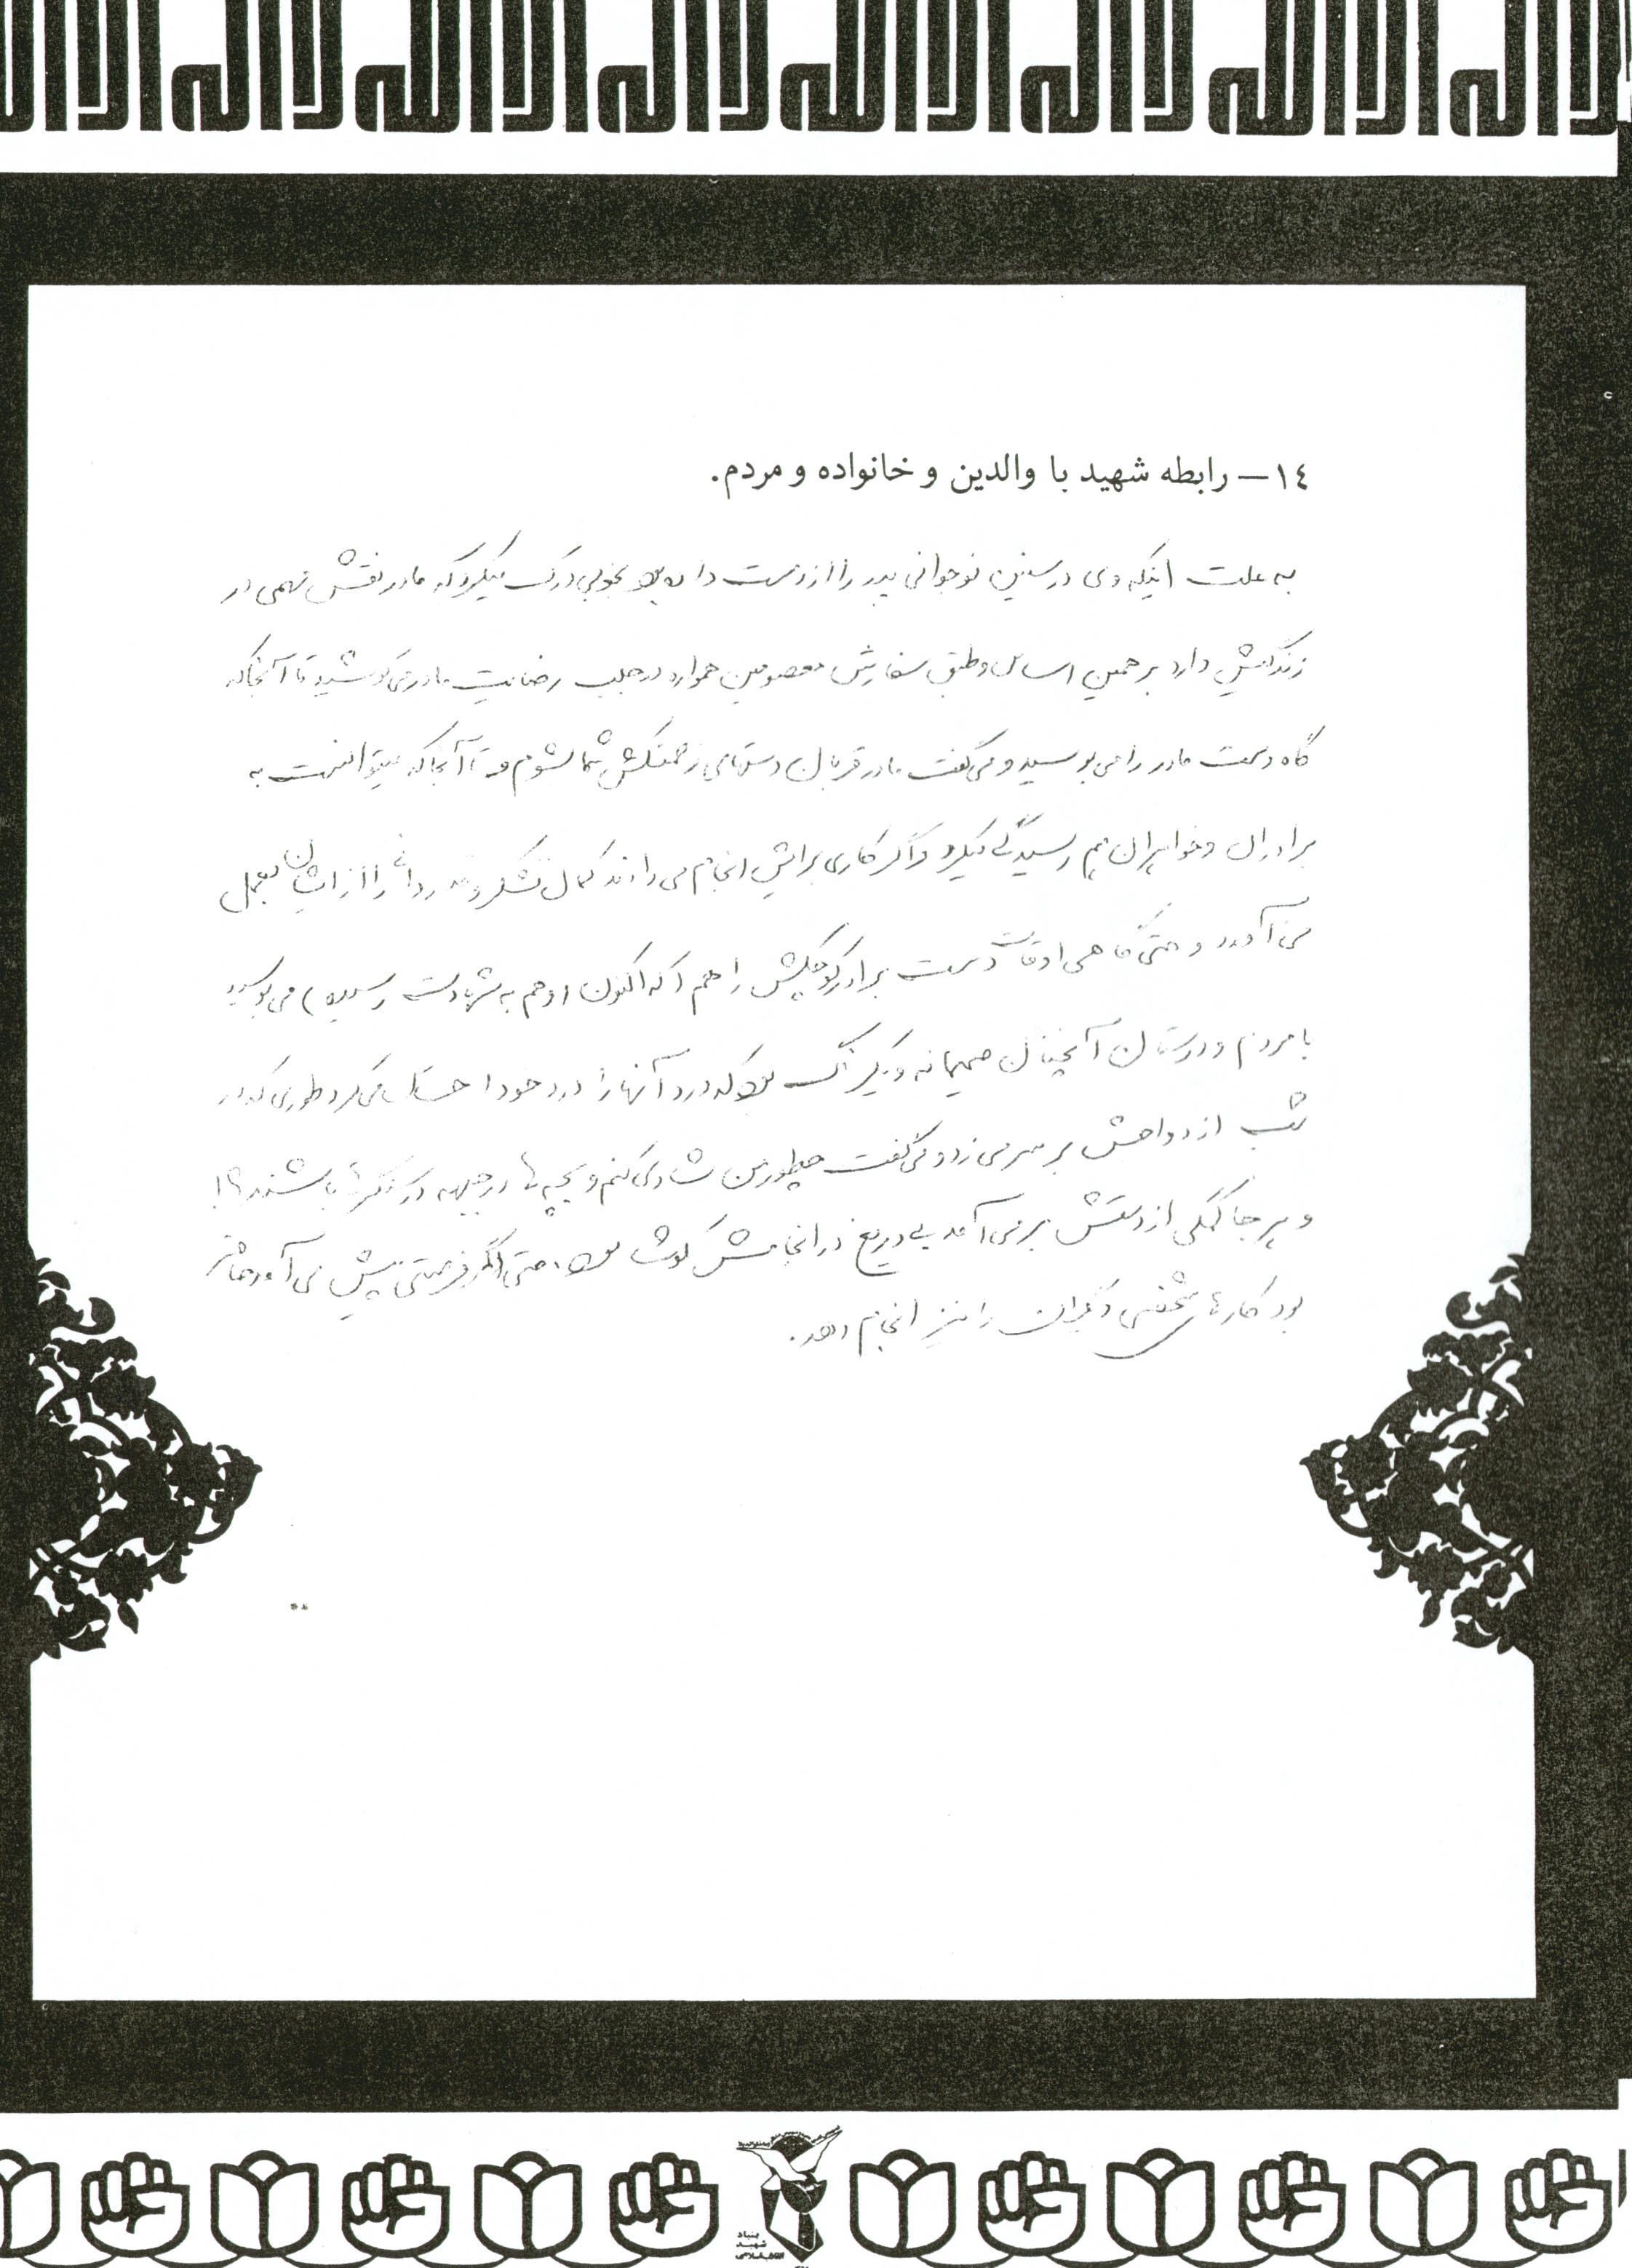 ١٤ــ رابطه شهید با والدین و خانواده و مردم.
به علت اینکه وی در سنین نوجوانی پدر را از دست داده بود بخوبی درک میکرد که مادر نقش مهمی در
زندگیش دارد بر همین اساس و طبق سفارش معصومین همواره در جلب رضایت مادر می کوشید تا آنجا که
گاه دست مادر را می بوسید و می گفت مادر قربان دستهای زحمتکش شما شوم و تا آنجا که میتوانست به
برادران و خواهران هم رسیدگی میکرد و اگر کاری برایش انجام می دادند کمال تشکر و قدردانی را از ایشان بعمل
می آورد و حتی گاهی اوقات دست برادر کوچکش را هم (که اکنون او هم به شهادت رسیده) می بوسید
با مردم و دوستان آنچنان صمیمانه و یکرنگ بود که درد آنها را درد خود احساس می کرد طوری که در
شب ازدواجش بر سر می زد و می گفت چطور من شادی کنم و بچه ها در جبهه در سنگرها باشند؟!
و هر جا کمکی از دستش بر می آمد بی دریغ در انجامش کوشا بود. حتی اگر فرصتی پیش می آمد حاضر
بود کارهای شخصی دیگران را نیز انجام دهد.
بنیاد
شهید
انقلاب اسلامی